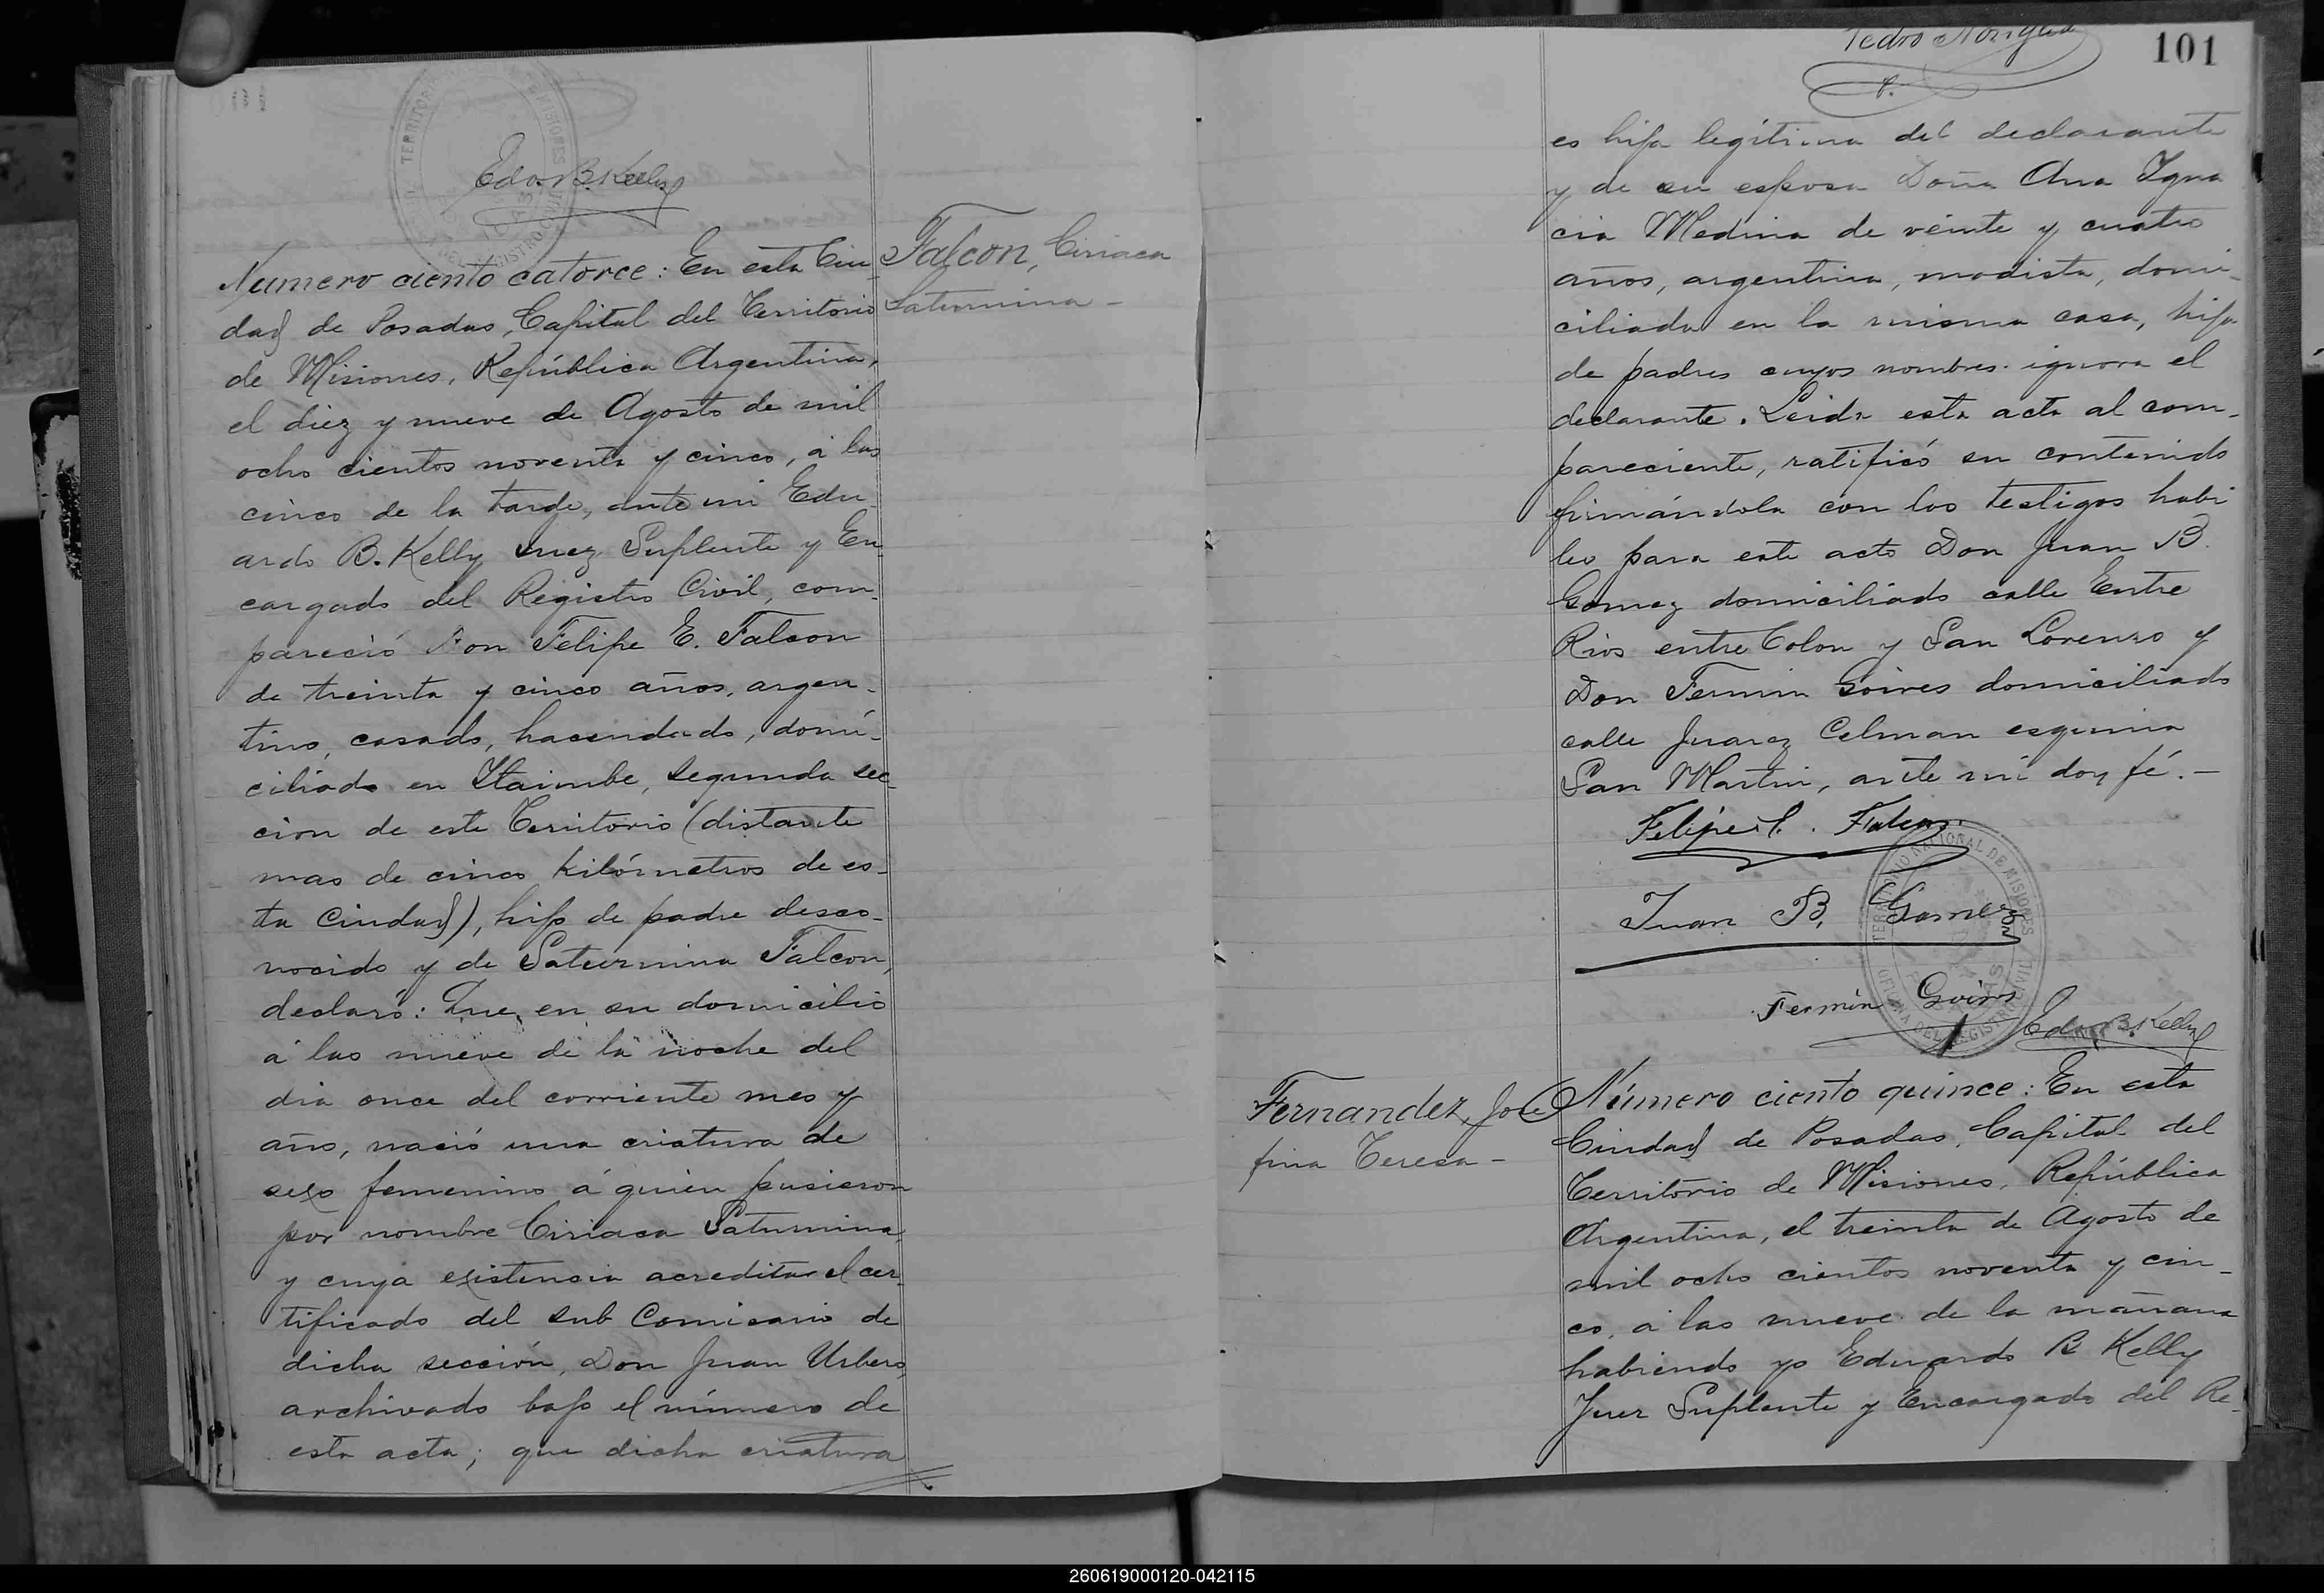 Edo. B. Kelly
Falcon, Ciriaca
Saturnina -
Numero ciento catorce: En esta Ciu-
dad de Posadas, Capital del Territorio
de Misiones, República Argentina,
el diez y nueve de Agosto de mil
ocho cientos noventa y cinco, á las
cinco de la tarde, ante mi Edu-
ardo B. Kelly Juez Suplente y En-
cargado del Registro Civil, com-
pareció Don Felipe E. Falcon
de treinta y cinco años, argen-
tino, casado, hacendado, domi-
ciliado en Itaimbe, segunda sec-
cion de este Territorio (distante
mas de cinco kilómetros de es-
ta Ciudad), hijo de padre desco-
nocido y de Saturnina Falcon,
declaró: Que, en su domicilio
á las nueve de la noche del
dia once del corriente mes y
año, nació una criatura de
sexo femenino á quien pusieron
por nombre Ciriaca Saturnina
y cuya existencia acredita el cer-
tificado del sub Comisario de
dicha sección, Don Juan
archivado bajo el número de
esta acta; que dicha criatura
Pedro
101
es hija legítima del declarante
y de su esposa Doña Ana Igna
cia Medina de veinte y cuatro
años, argentina, modista, domi-
ciliada en la misma casa, hija
de padres cuyos nombres ignora el
declarante. Leida esta acta al com-
pareciente, ratificó su contenido
firmándola con los testigos habi
les para este acto Don Juan B.
Gomez domiciliado calle Entre
Rios entre Colon y San Lorenzo y
Don Fermin Goires domiciliado
calle Juarez Celman esquina
San Martin, ante mi doy fé. -
Felipe E. Falcon
Juan B. Gomez
Fermín Goires
Edo. B. Kelly
TERRITORIO NACIONAL DE MISIONES
OFICINA DEL REGISTRO CIVIL
Fernandez, Jose
fina Teresa -
Número ciento quince: En esta
Ciudad de Posadas, Capital del
Territorio de Misiones, República
Argentina, el treinta de Agosto de
mil ocho cientos noventa y cin-
co, á las nueve de la mañana
habiendo yo Eduardo B Kelly
Juez Suplente y Encargado del Re-
260619000120-042115